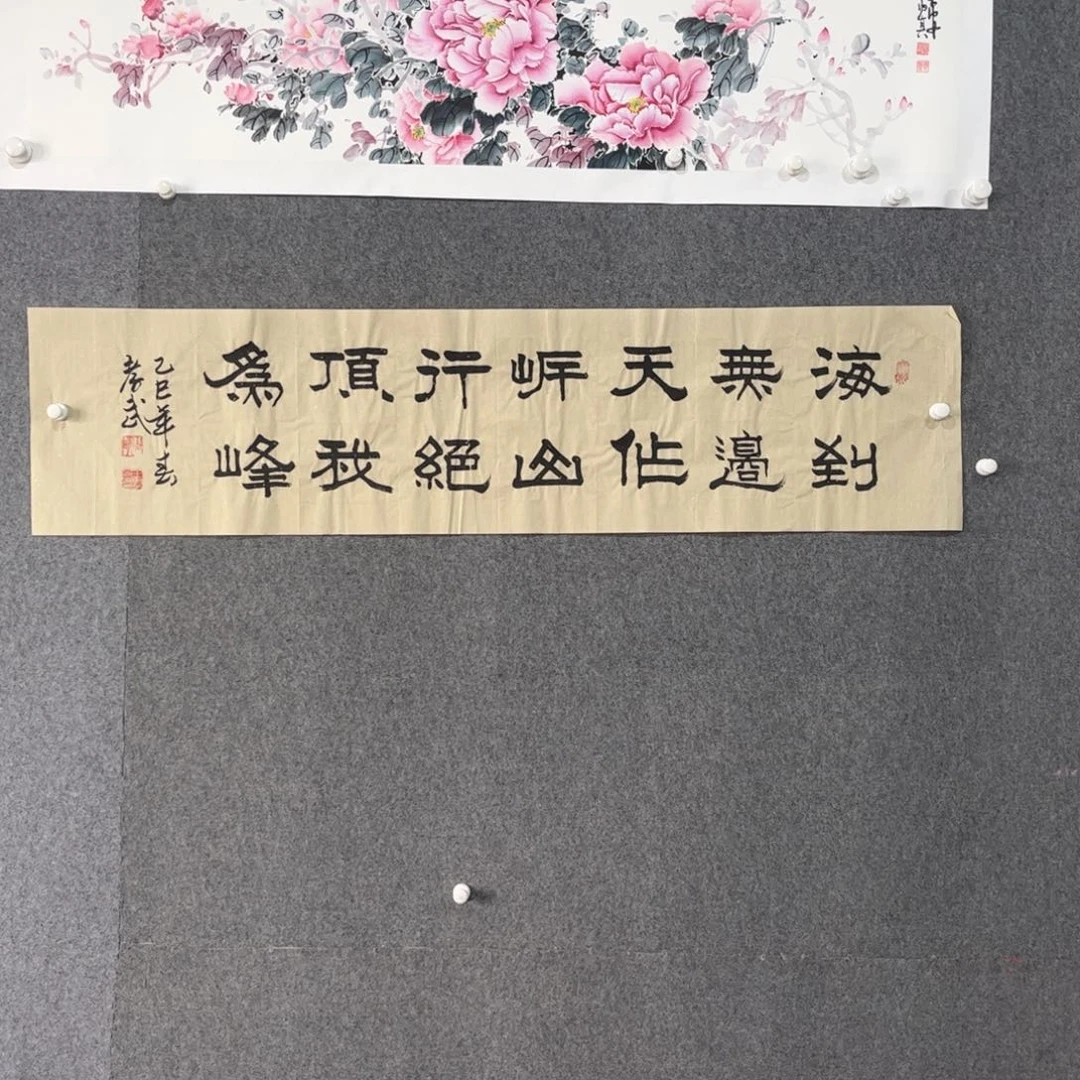 海到
無邊
天作
岸山
行絕
頂我
爲峰
乙巳年春
武